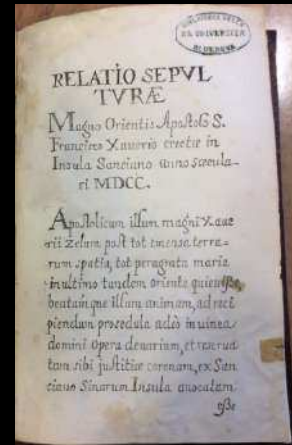 BIBLIOTECA DELLA
R. UNIVERSITÀ
RELATIO SEPVL
TVRÆ
Magno Orientis Apostolo S.
Francisco Xauerio erectæ in
Insula Sanciano anno sæcula-
ri MDCC.
Apostolicum illum magni Xaue
rii Zelum post tot emensa terra-
rum spatia, tot peragrata maria
in ultimo tandem oriente quieuisse,
beatamque illum animam, ad reci
piendum pro sedula adeò in uinea
domini opera denarium, et reserua
tam sibi justitiæ coronam, ex San
ciano Sinarum Insula auocatam
eße